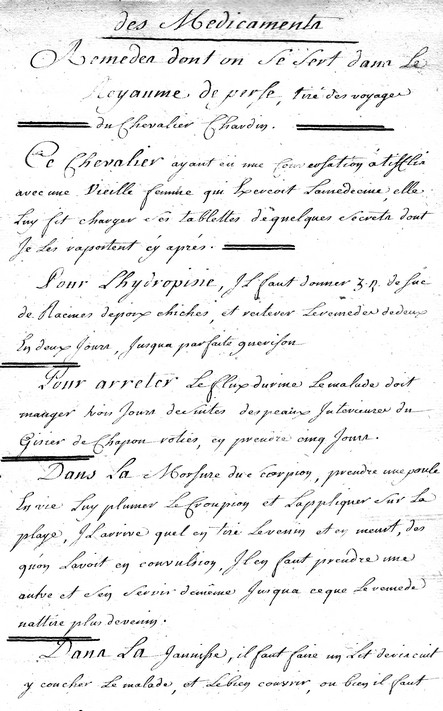 des Medicaments
Remedes dont on se sert dans Le
Royaume de perse, tiré des voyages
du Chevalier Chardin.
Ce Chevalier ayant eu une Conversation à tifflis
avec une Vieille femme qui Exercoit Lamedecine, elle
Luy fit charger ses tablettes de quelques Secrets dont
Je Les raportent cy aprés.
Pour Lhydropisie, JL faut donner de Suc
de Racines de poix chiches, et reiterer Leremede de deux
En deux Jours, Jusqua parfaite guerison
Pour arreter Le flux durine Le malade doit
manger trois Jours de suites des peaux Interieures du
Gisier de Chapon roties, en prendre cinq Jours.
Dans La Morsure du Scorpion, prendre une poule
En vie Luy plumer Le Croupion et Lappliquer Sur La
playe, JL arrive quel en tire Levenin et en meurt, des
quon Lavoit en convulsion, JL en faut prendre une
autre et sen servir demême Jusqua ceque Le remede
nattire plus devenin.
Dans La Jaunisse, il faut faire un Lit
y coucher Le malade, et Lebien couvrir, ou bien il faut